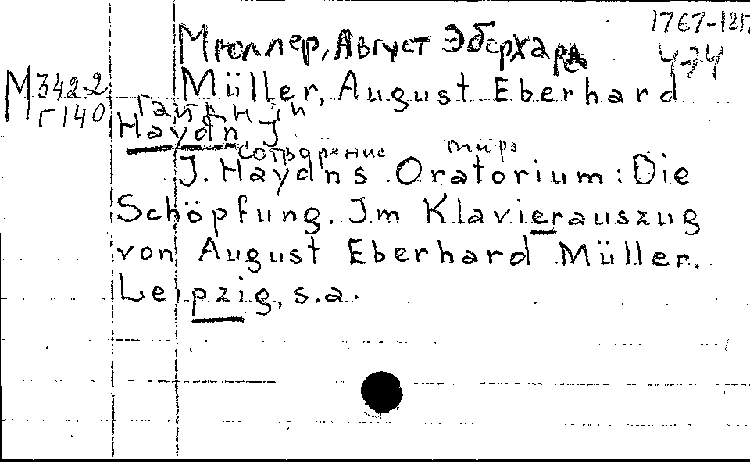 1767-1817
Мюллер, Август Эберхард
М 342-2
Г 140
Müller, August Eberhard
Гайдн Й
Haydn J
Сотворение мира
J. Haydns Oratorium: Die
Schöpfung. Im Klavierauszug
von August Eberhard Müller.
Leipzig, s.a.